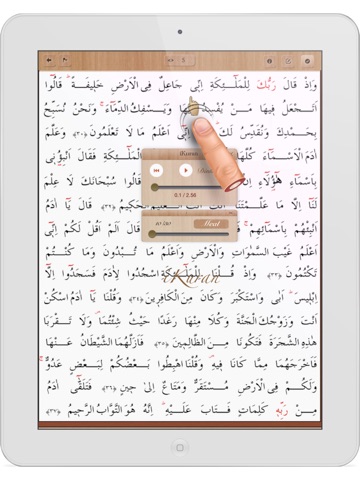 5
وَاِذْ قَالَ رَبُّكَ لِلْمَلٰٓئِكَةِ اِنّ۪ي جَاعِلٌ فِي الْاَرْضِ خَل۪يفَةًۜ قَالُٓوا
اَتَجْعَلُ ف۪يهَا مَنْ يُفْسِدُ ف۪يهَا وَيَسْفِكُ الدِّمَٓاءَۚ وَنَحْنُ نُسَبِّحُ
بِحَمْدِكَ وَنُقَدِّسُ لَكَۜ اِنّ۪ٓي اَعْلَمُ مَا لَا تَعْلَمُونَ ﴿٣٠﴾ وَعَلَّمَ
اٰدَمَ الْاَسْمَٓاءَ كُلَّهَا الْمَلٰٓئِكَةِ فَقَالَ اَنْبِؤُ۫ن۪ي
iKuran
بِاَسْمَٓاءِ هٰٓؤُ۬لَٓاءِ قَالُوا سُبْحَانَكَ لَا عِلْمَ
0.1 / 2.56
لَنَٓا اِلَّا مَا الْحَك۪يمُ ﴿٣٢﴾ قَالَ يَٓا اٰدَمُ
اَنْبِئْهُمْ بِاَسْمَٓائِهِمْۚ قَالَ اَلَمْ اَقُلْ لَكُمْ اِنّ۪ٓي
Meal
اَعْلَمُ غَيْبَ السَّمٰوَاتِ وَالْاَرْضِ وَاَعْلَمُ مَا تُبْدُونَ وَمَا كُنْتُمْ
تَكْتُمُونَ ﴿٣٣﴾ وَاِذْ قُلْنَا لِلْمَلٰٓئِكَةِ اسْجُدُوا لِاٰدَمَ فَسَجَدُٓوا اِلَّٓا
iKuran
اِبْل۪يسَۜ اَبٰى وَاسْتَكْبَرَ وَكَانَ مِنَ الْكَافِر۪ينَ ﴿٣٤﴾ وَقُلْنَا يَٓا اٰدَمُ اسْكُنْ
اَنْتَ وَزَوْجُكَ الْجَنَّةَ وَكُلَا مِنْهَا رَغَدًا حَيْثُ شِئْتُمَاۖ وَلَا تَقْرَبَا
هٰذِهِ الشَّجَرَةَ فَتَكُونَا مِنَ الظَّالِم۪ينَ ﴿٣٥﴾ فَاَزَلَّهُمَا الشَّيْطَانُ عَنْهَا
فَاَخْرَجَهُمَا مِمَّا كَانَا ف۪يهِۖ وَقُلْنَا اهْبِطُوا بَعْضُكُمْ لِبَعْضٍ عَدُوٌّۚ
وَلَكُمْ فِي الْاَرْضِ مُسْتَقَرٌّ وَمَتَاعٌ اِلٰى ح۪ينٍ ﴿٣٦﴾ فَتَلَقّٰٓى اٰدَمُ
مِنْ رَبِّه۪ كَلِمَاتٍ فَتَابَ عَلَيْهِۜ اِنَّهُ هُوَ التَّوَّابُ الرَّح۪يمُ ﴿٣٧﴾